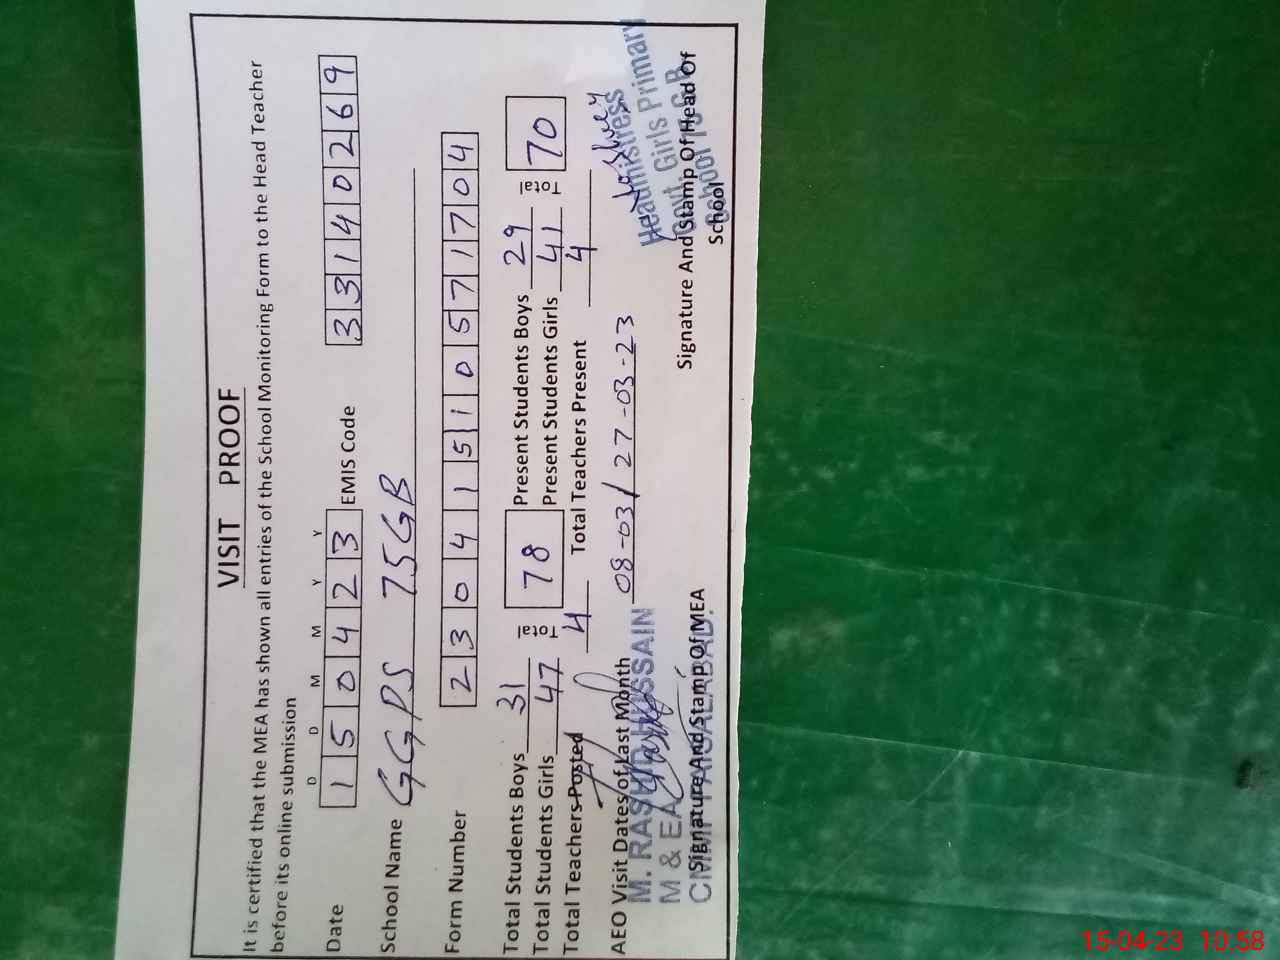 VISIT PROOF
It is certified that the MEA has shown all entries of the School Monitoring Form to the Head Teacher
before its online submission
D D M M Y Y
Date 1 5 0 4 2 3 EMIS Code 3 3 1 4 0 2 6 9
School Name GGPS 75GB
Form Number 2 3 0 4 1 5 1 0 5 7 1 7 0 4
Total Students Boys 31 Total 78 Present Students Boys 29 Total 70
Total Students Girls 47 Present Students Girls 41
Total Teachers Posted 4 Total Teachers Present 4
AEO Visit Dates of Last Month 08-03/27-03-23
M. RASHID HUSSAIN
M & EA
CMMF FAISALABAD.
Signature And Stamp Of MEA
Headmistress
Govt. Girls Primary
School 75 G.B
Signature And Stamp Of Head Of
School
15-04-23 10:58